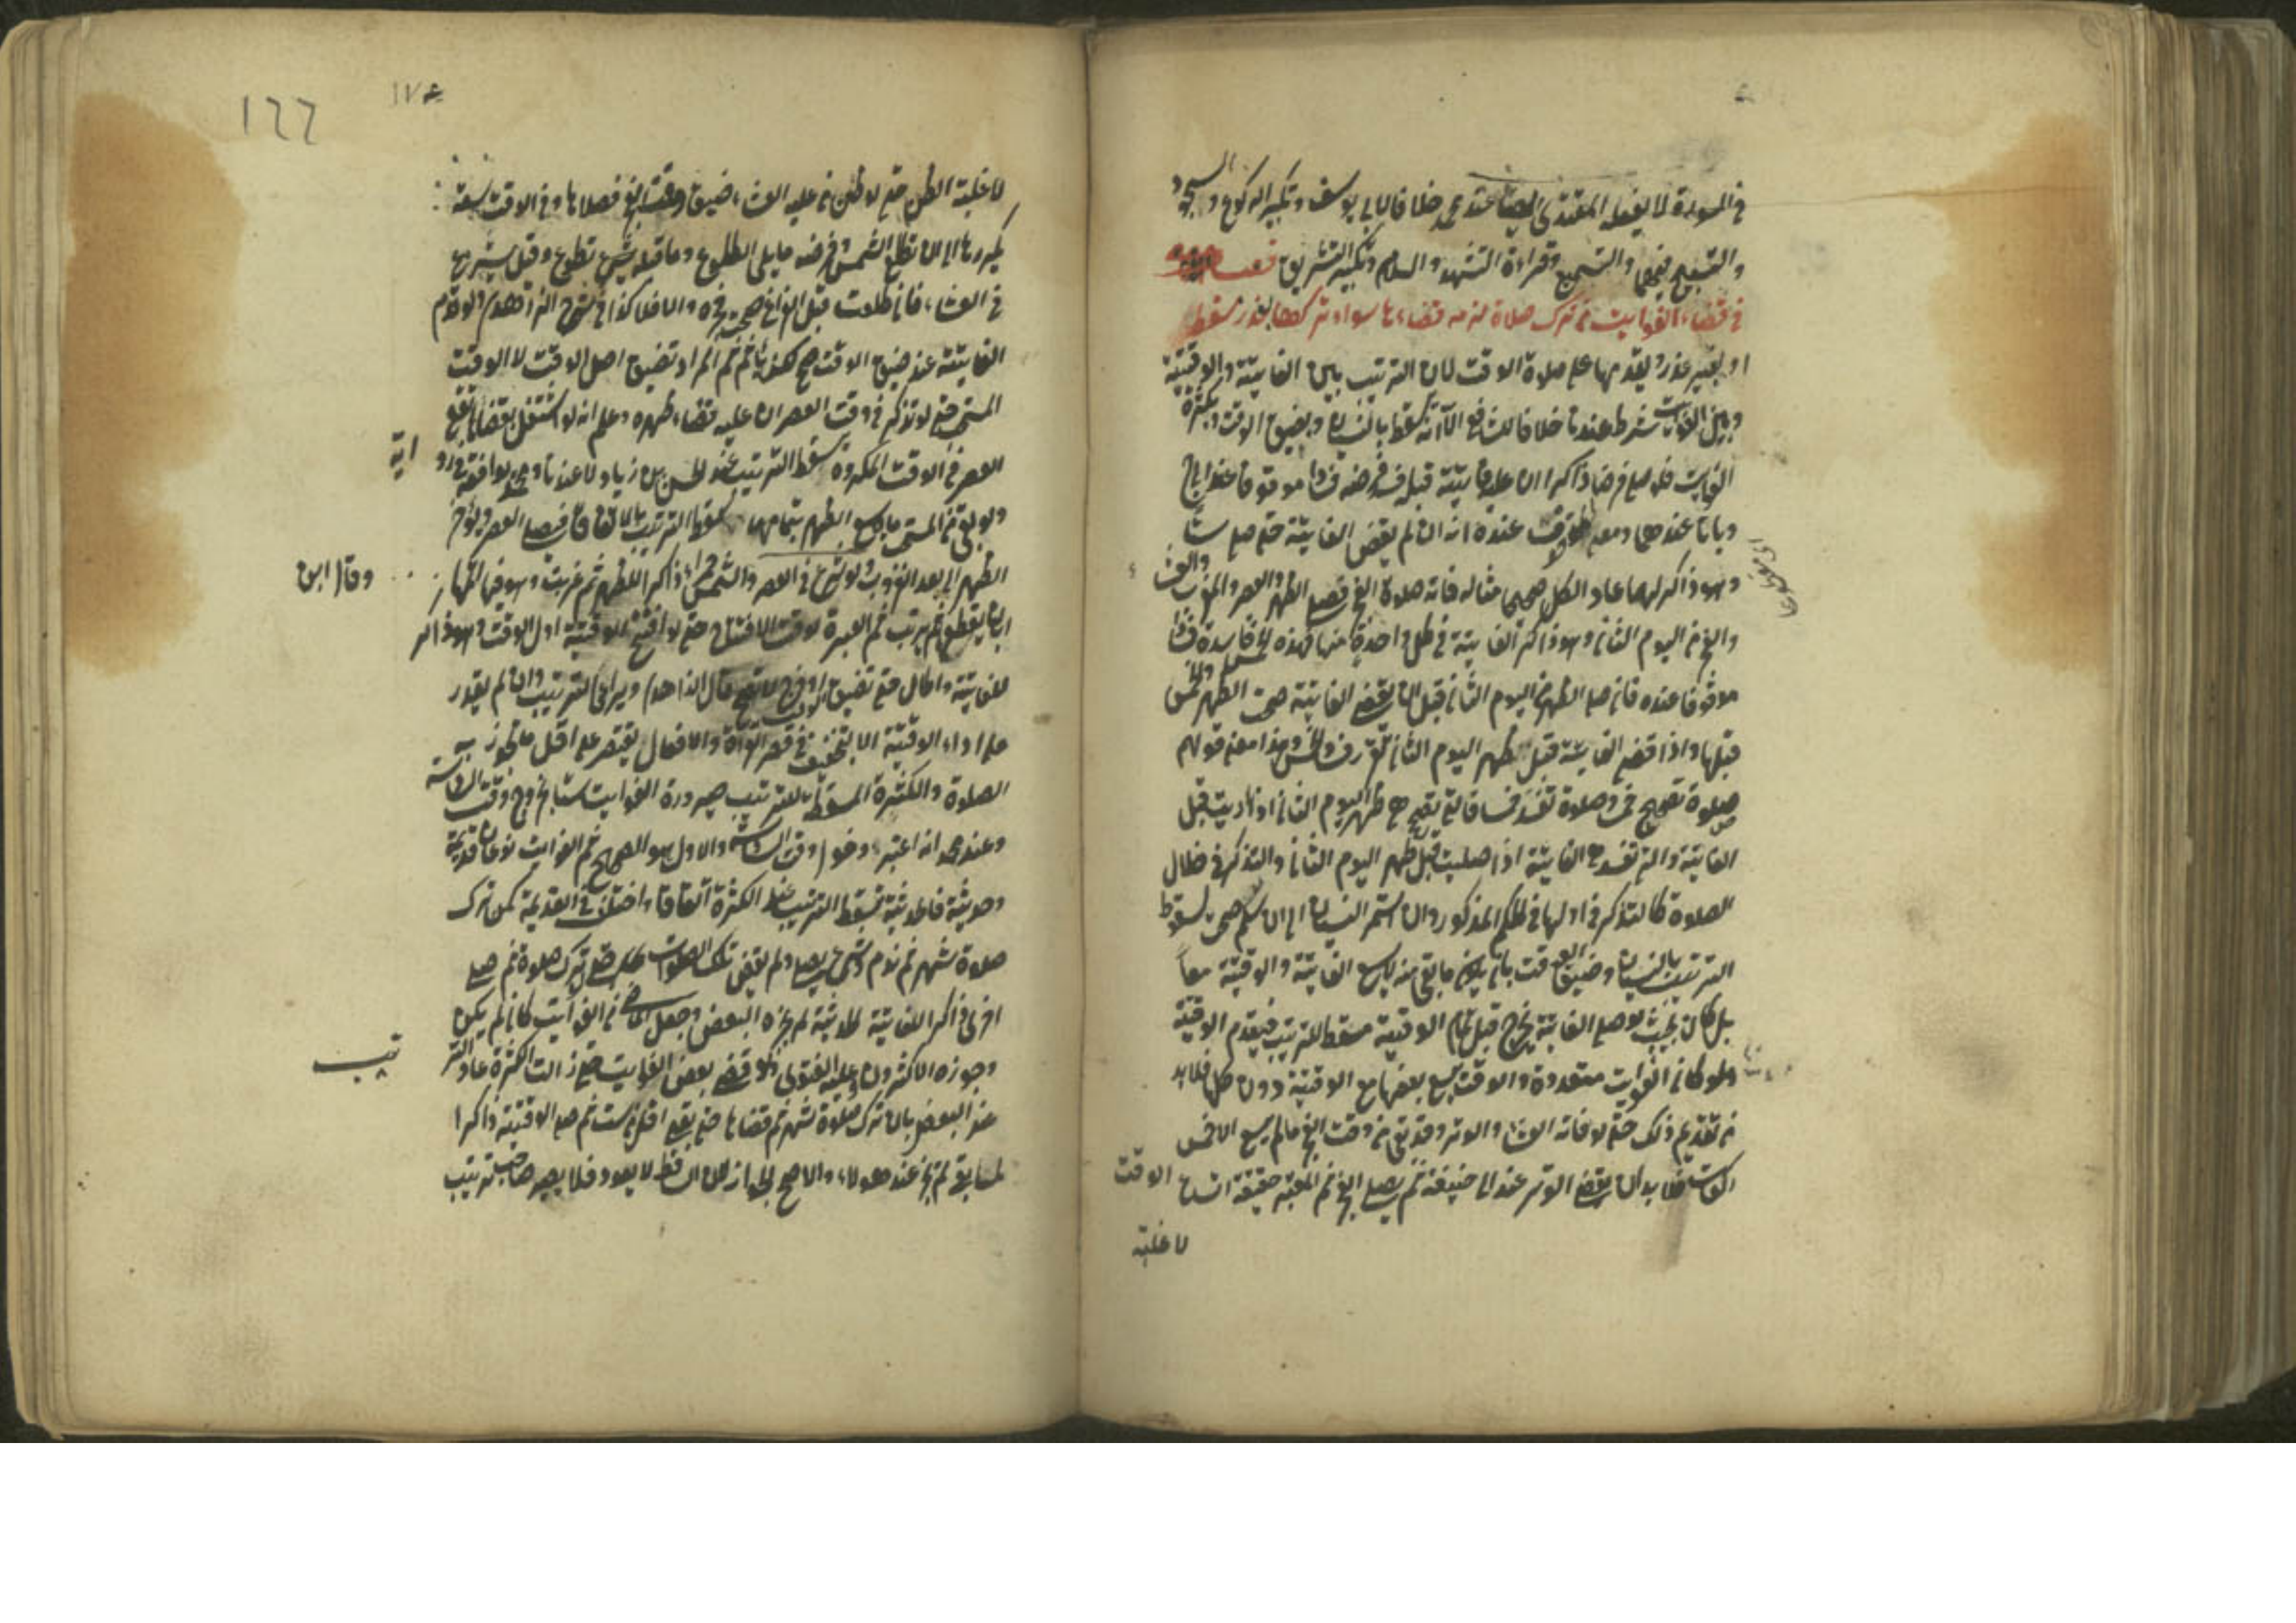 في السورة لا يفعله المقتدي ايضا عند محمد خلافا لابي يوسف وتكبير الركوع والسجود
والتسبيح فيهما والتسميع وقراءة التشهد والسلام وتكبير التشريق فصل
في قضاء الفوايت من ترك صلاة لزمه قضاءها سواء تركها بعذر مسقط
او بغير عذر ويقدمها على صلاة الوقت لان الترتيب بين الفايتة والوقتية
وبين الفوايت شرط عندنا خلافا للشافعي الا انه يسقط بالنسيان وبضيق الوقت وبكثرة
الفوايت فلو صلى فرضا ذاكرا ان عليه فايتة قبله فسد فرضه فسادا موقوفا عند ابي ح
وباتا عندهما ومعنى عنده انه ان لم يقض الفايتة حتى صلى ستا
وهو ذاكر لها عاد الكل صحيحا مثاله فاته صلوة الفجر فصلى الظهر والعصر والمغرب والعشاء
والفجر من اليوم الثاني وهو ذاكر الفايتة في كل واحدة منها فهذه الخمس فاسدة فسادا
موقوفا عنده فان صلى الظهر من اليوم الثاني قبل ان يقضي الفايتة صحت الظهر والخمس
قبلها واذا قضى الفايتة قبل ظهر اليوم الثاني تقرر فساد الخمس وهذا معنى قولهم
صلوة تصحح خمسا وصلوة تفسد خمسا فالتي تصحح هي ظهر اليوم الثاني اذا اديت قبل
الفايتة والتي تفسد هي الفايتة اذا صليت قبل ظهر اليوم الثاني والتذكر في خلال
الصلوة كالتذكر في اولها في الحكم المذكور وان استمر النسيان الى ان سلم صحت لسقوط
الترتيب بالنسيان وضيق الوقت بان يكون ما بقي منه لا يسع الفايتة والوقتية معا
بل كان بحيث لو صلى الفايتة يخرج قبل تمام الوقتية مسقط للترتيب فيقدم الوقتية
ولو كان الفوايت متعددة والوقت يسع بعضها مع الوقتية دون كل فلا بد
من تقديم ذلك حتى لو فاته العشاء والوتر وقد بقي من وقت الفجر ما لم يسع الا خمس
ركعات فلا بد ان يقضي الوتر عند ابي حنيفة ثم يصلي الفجر ثم المعتبر حقيقة اتساع الوقت
لا غلبة
١٧٤
١٦٦
لا غلبة الظن حتى لو ظن من عليه العشاء ضيق وقت الفجر فصلاها وفي الوقت سعة
يكررها الى ان تطلع الشمس وفرضه ما يلي الطلوع وما قبله تطوع وقيل يشرع
في العشاء فان طلعت قبل الفراغ صحت فجره والا فلا كذا في شرح الزاهدي ولو قدم
الفايتة عند ضيق الوقت صح لكنه ياثم ثم المراد تضيق اصل الوقت لا الوقت
المستحب حتى لو تذكر في وقت العصر ان عليه قضاء ظهره وعلم انه لو اشتغل بقضائها تقع
العصر في الوقت المكروه يسقط الترتيب عند الحسن بن زياد لا عندنا ومحمد يوافقه في رواية
ولو بقي من المستحب ما لا يسع الظهر بتمامها يسقط الترتيب بالاتفاق فيصلي العصر ويؤخر
الظهر الى بعد الغروب ولو شرع في العصر والشمس حمراء ذاكرا للظهر ثم غربت وهو فيها اتمها وقال ابن
ابان يقطع ثم يرتب ثم العبرة لوقت الافتتاح حتى لو افتتح الوقتية اول الوقت وهو ذاكر
للفايتة واطال حتى تضيق او خرج الوقت لا تصح قال الزاهدي ويراعي الترتيب وان لم يقدر
على اداء الوقتية الا بالتخفيف في قصر القراءة والافعال يقتصر على اقل ما تجوز به
الصلوة والكثرة المسقطة للترتيب صيرورة الفوايت ستا بخروج وقت السادسة
وعند محمد انه اعتبر دخول وقت السادسة والاول هو الصحيح ثم الفوايت نوعان قديمة
وحديثة فالحديثة تسقط الترتيب عند الكثرة اتفاقا واختلف في القديمة كمن ترك
صلوة شهر ثم ندم يصلي ولم يقض تلك الصلوات حتى ترك صلوة ثم صلى
اخرى ذاكرا للفايتة الحديثة لم يجزه البعض وجعل الماضي من الفوايت كان لم يكن
وجوزه الاكثرون وعليه الفتوى ولو قضى بعض الفوايت حتى زالت الكثرة عاد الترتيب
عند البعض بان ترك صلوة شهر ثم قضاها حتى بقي اقل من ست ثم صلى الوقتية ذاكرا
لما بقي لم تجز عند هولاء والاصح الجواز لان الساقط لا يعود فلا يصير صاحب ترتيب